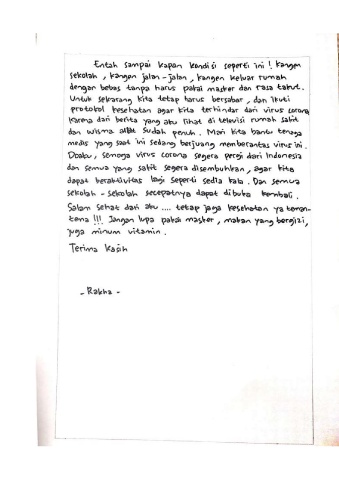 Entah sampai kapan kondisi seperti ini ! kangen
sekolah , kangen jalan-jalan, kangen keluar rumah
dengan bebas tanpa harus pakai masker dan rasa takut.
Untuk sekarang kita tetap harus bersabar , dan ikuti
protokol kesehatan agar kita terhindar dari virus corona
karena dari berita yang aku lihat di televisi rumah sakit
dan wisma atlet sudah penuh . Mari kita bantu tenaga
medis yang saat ini sedang berjuang memberantas virus ini .
Doaku , semoga virus corona segera pergi dari Indonesia
dan semua yang sakit segera disembuhkan , agar kita
dapat beraktivitas lagi seperti sedia kala . Dan semua
sekolah - sekolah secepatnya dapat dibuka kembali .
Salam sehat dari aku .... tetap jaga kesehatan ya teman-
teman !!! Jangan lupa pakai masker , makan yang bergizi,
juga minum vitamin .
Terima kasih
- Rakha -